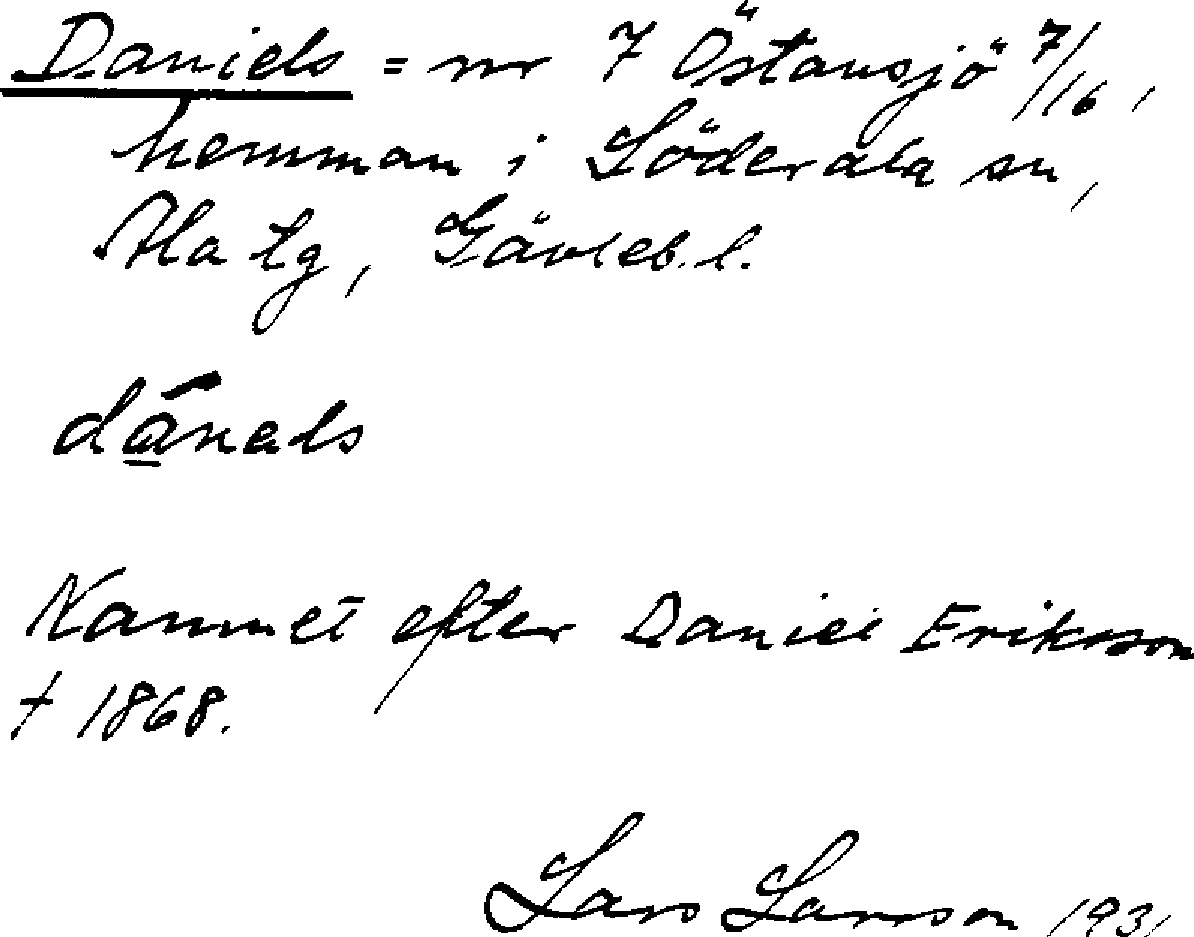 Daniels = nr 7 Östansjö 7/16,
hemman i Söderala sn,
Ala tg, Gävleb. l.
dánals
Namnet efter Daniel Eriksson
† 1868.
Lars Larsson 1931